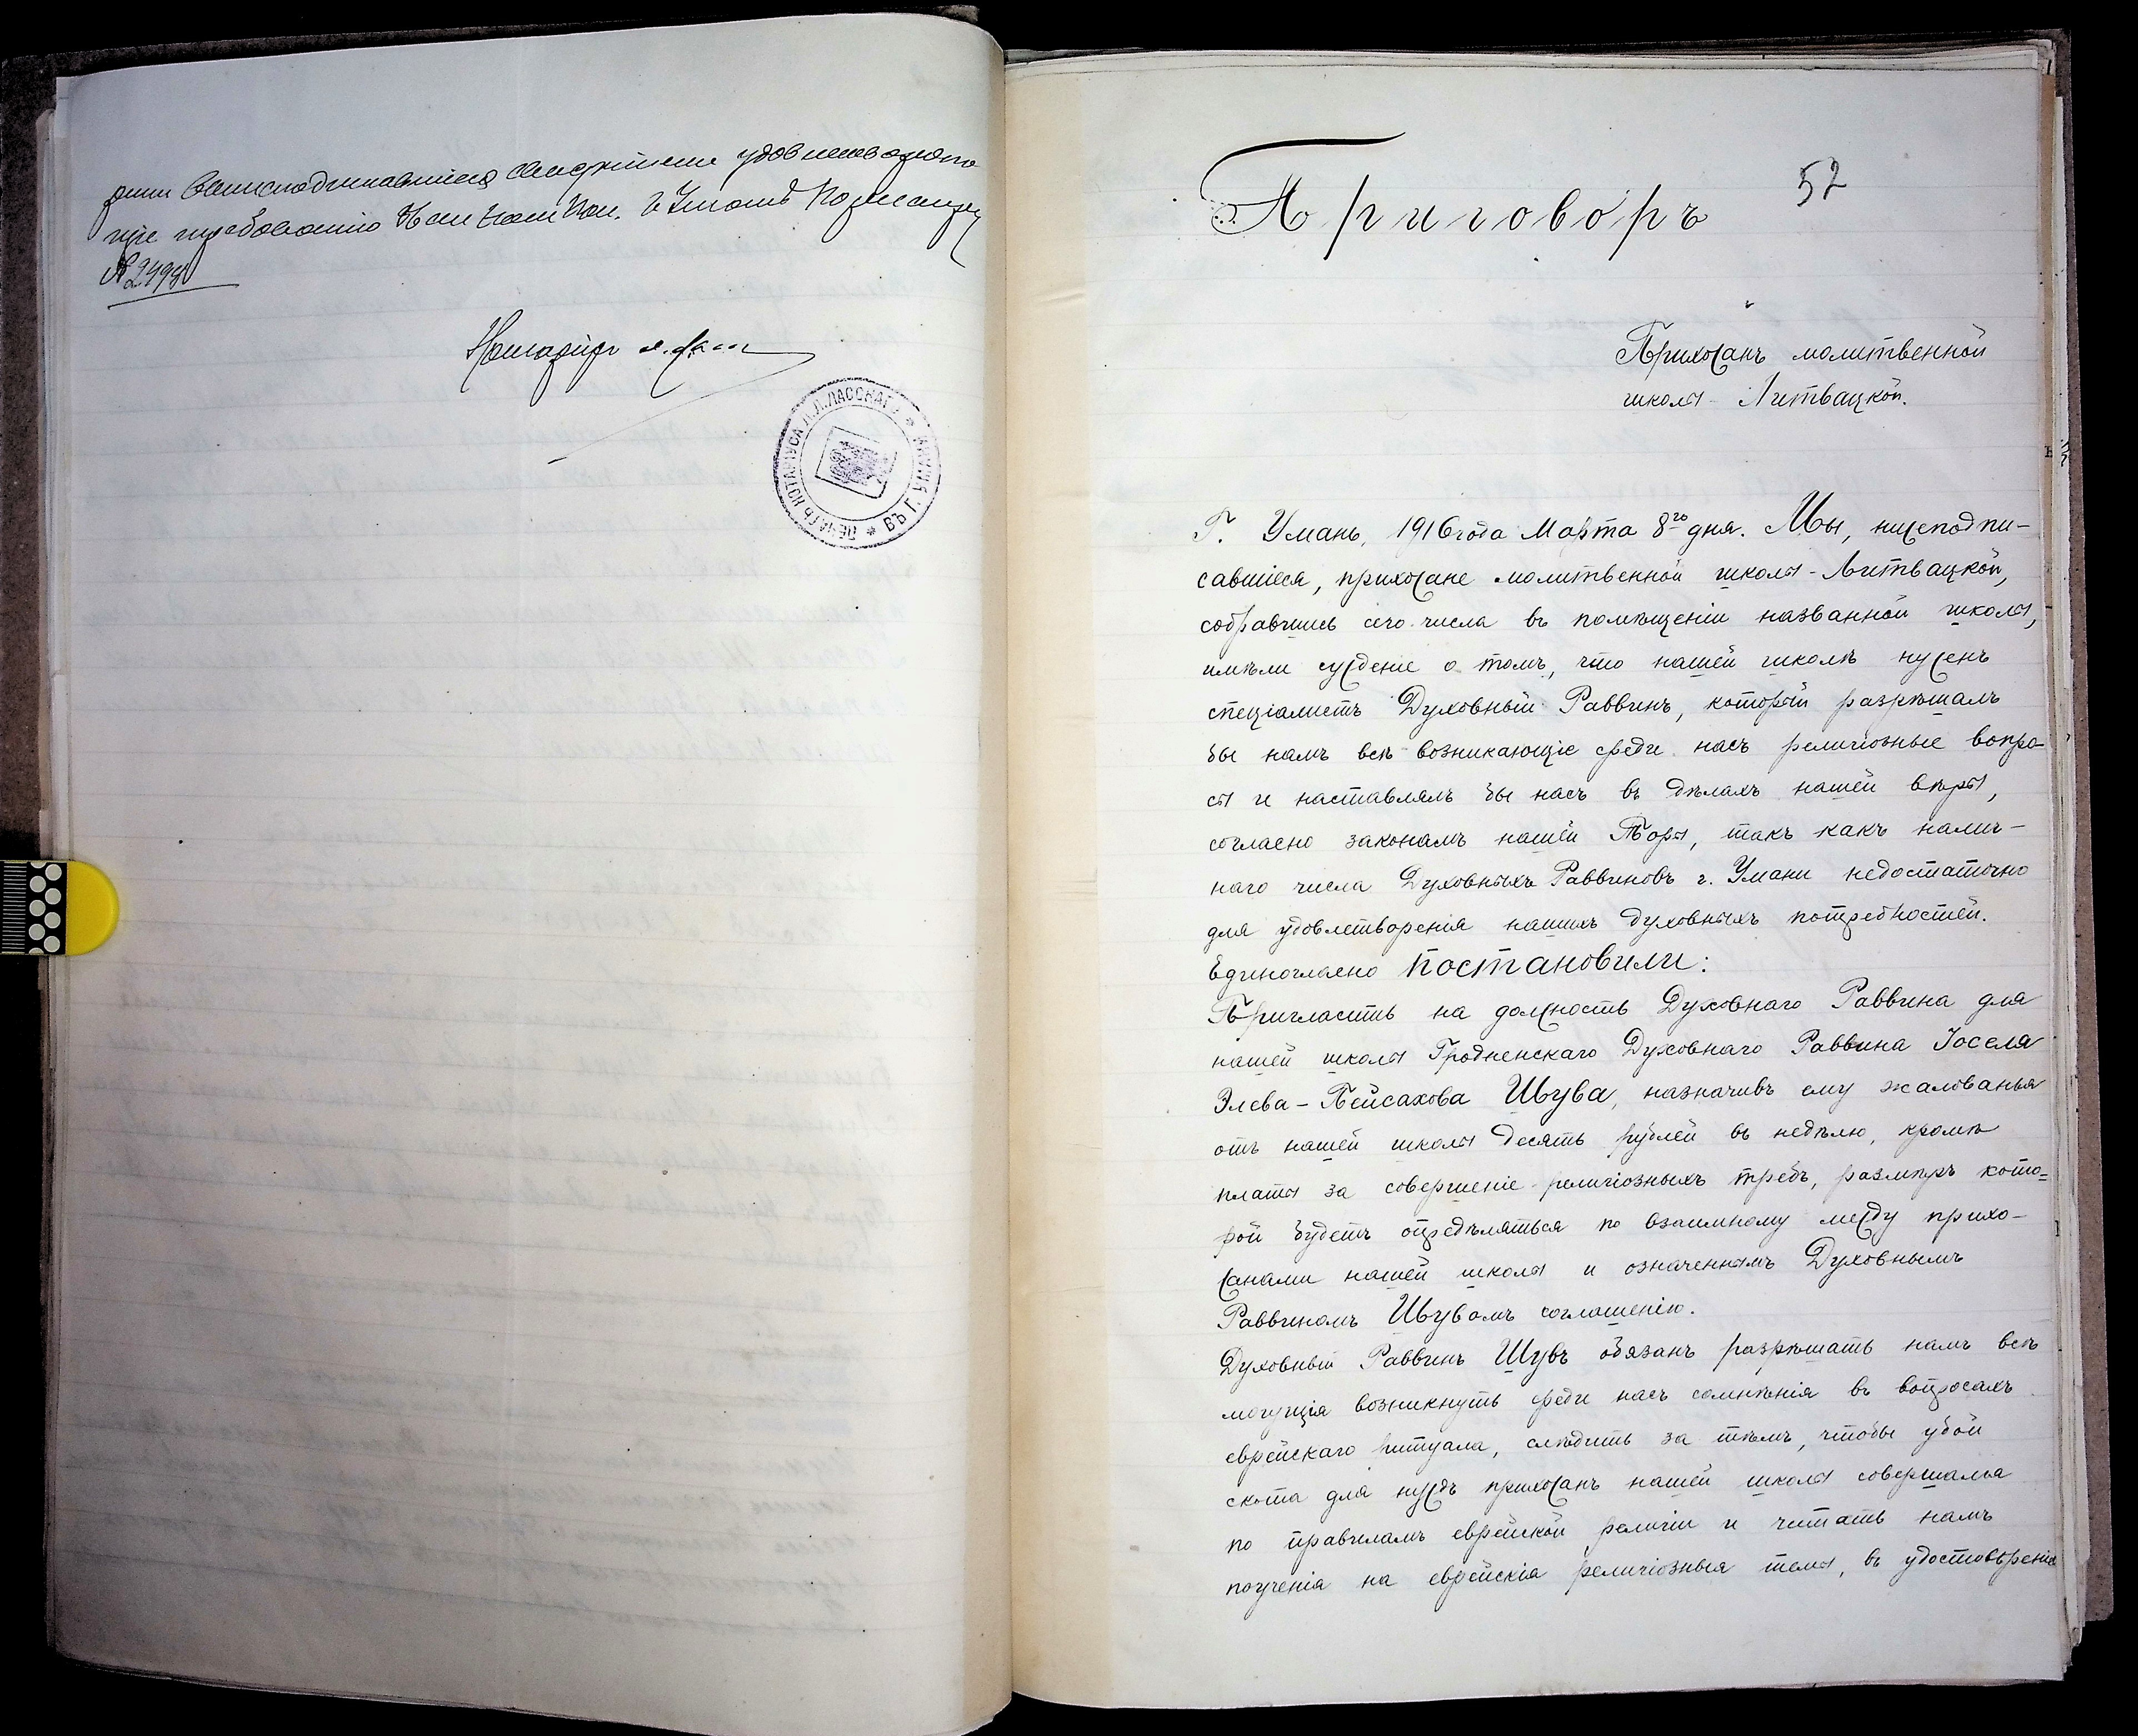 № 2498
Нотаріусъ
ПЕЧАТЬ НОТАРІУСА Л.Л.ЛАССКАГО * ВЪ Г. УМАНИ *
52
Приговоръ
Прихожанъ молитвенной
школы - Литвацкой.
Г. Умань, 1916 года Марта 8го дня. Мы, нижеподпи-
савшіеся, прихожане молитвенной школы - Литвацкой,
собравшись сего числа въ помѣщеніи названной школы,
имѣли сужденіе о томъ, что нашей школѣ нуженъ
спеціалистъ Духовный Раввинъ, который разрѣшалъ
бы намъ всѣ возникающіе среди насъ религіозные вопро-
сы и наставлялъ бы насъ въ дѣлахъ нашей вѣры,
согласно законамъ нашей Торы, такъ какъ налич-
наго числа Духовныхъ Раввиновъ г. Умани недостаточно
для удовлетворенія нашихъ духовныхъ потребностей.
Единогласно постановили:
Пригласить на должность Духовнаго Раввина для
нашей школы Гродненскаго Духовнаго Раввина Іоселя
Элева - Пейсахова Шува, назначивъ ему жалованья
отъ нашей школы десять рублей въ недѣлю, кромѣ
платы за совершеніе религіозныхъ требъ, размѣръ кото-
рой будетъ опредѣляться по взаимному между прихо-
жанами нашей школы и означеннымъ Духовнымъ
Раввиномъ Шувомъ соглашенію.
Духовный Раввинъ Шувъ обязанъ разрѣшать намъ всѣ
могущія возникнуть среди насъ сомнѣнія въ вопросахъ
еврейскаго ритуала, слѣдить за тѣмъ, чтобы убой
скота для нуждъ прихожанъ нашей школы совершался
по правиламъ еврейской религіи и читать намъ
поученія на еврейскія религіозныя темы, въ удостовѣреніе